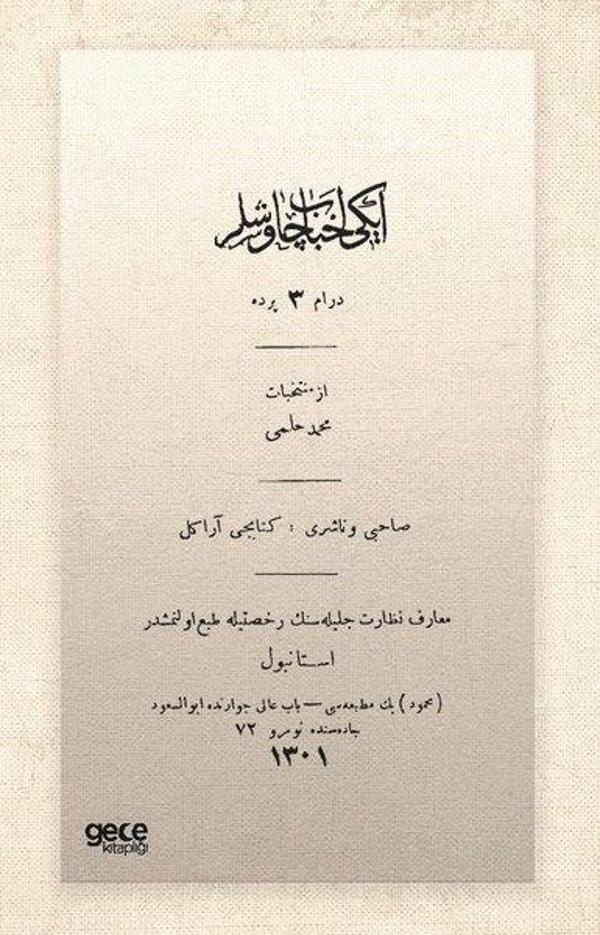 ایكی احباب چاوشلر
درام ۳ پرده
از منتخبات
محمد حلمی
صاحبی وناشری : كتابجی آراكل
معارف نظارت جلیله‌سنك رخصتیله طبع اولنمشدر
استانبول
(محمود) بك مطبعه‌سی — باب عالی جوارنده ابوالسعود
جاده‌سنده نومرو ۷۲
۱۳۰۱
gece
kitaplığı